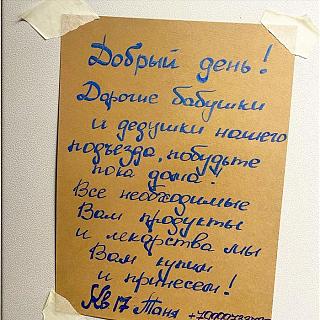 Добрый день!
Дорогие бабушки
и дедушки нашего
подъезда, побудьте
пока дома!
Все необходимые
Вам продукты
и лекарства мы
Вам купим
и принесем!
Кв 17 Таня